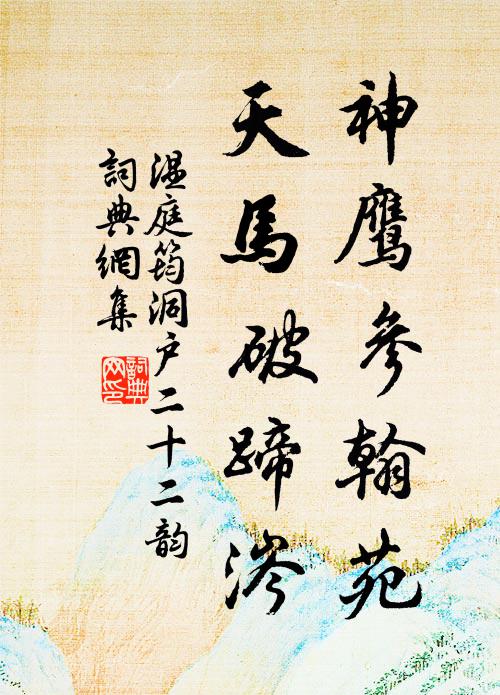 神鹰参翰苑
天馬破蹄涔
温庭筠洞户二十二韵
詞典網集
詞典
网印